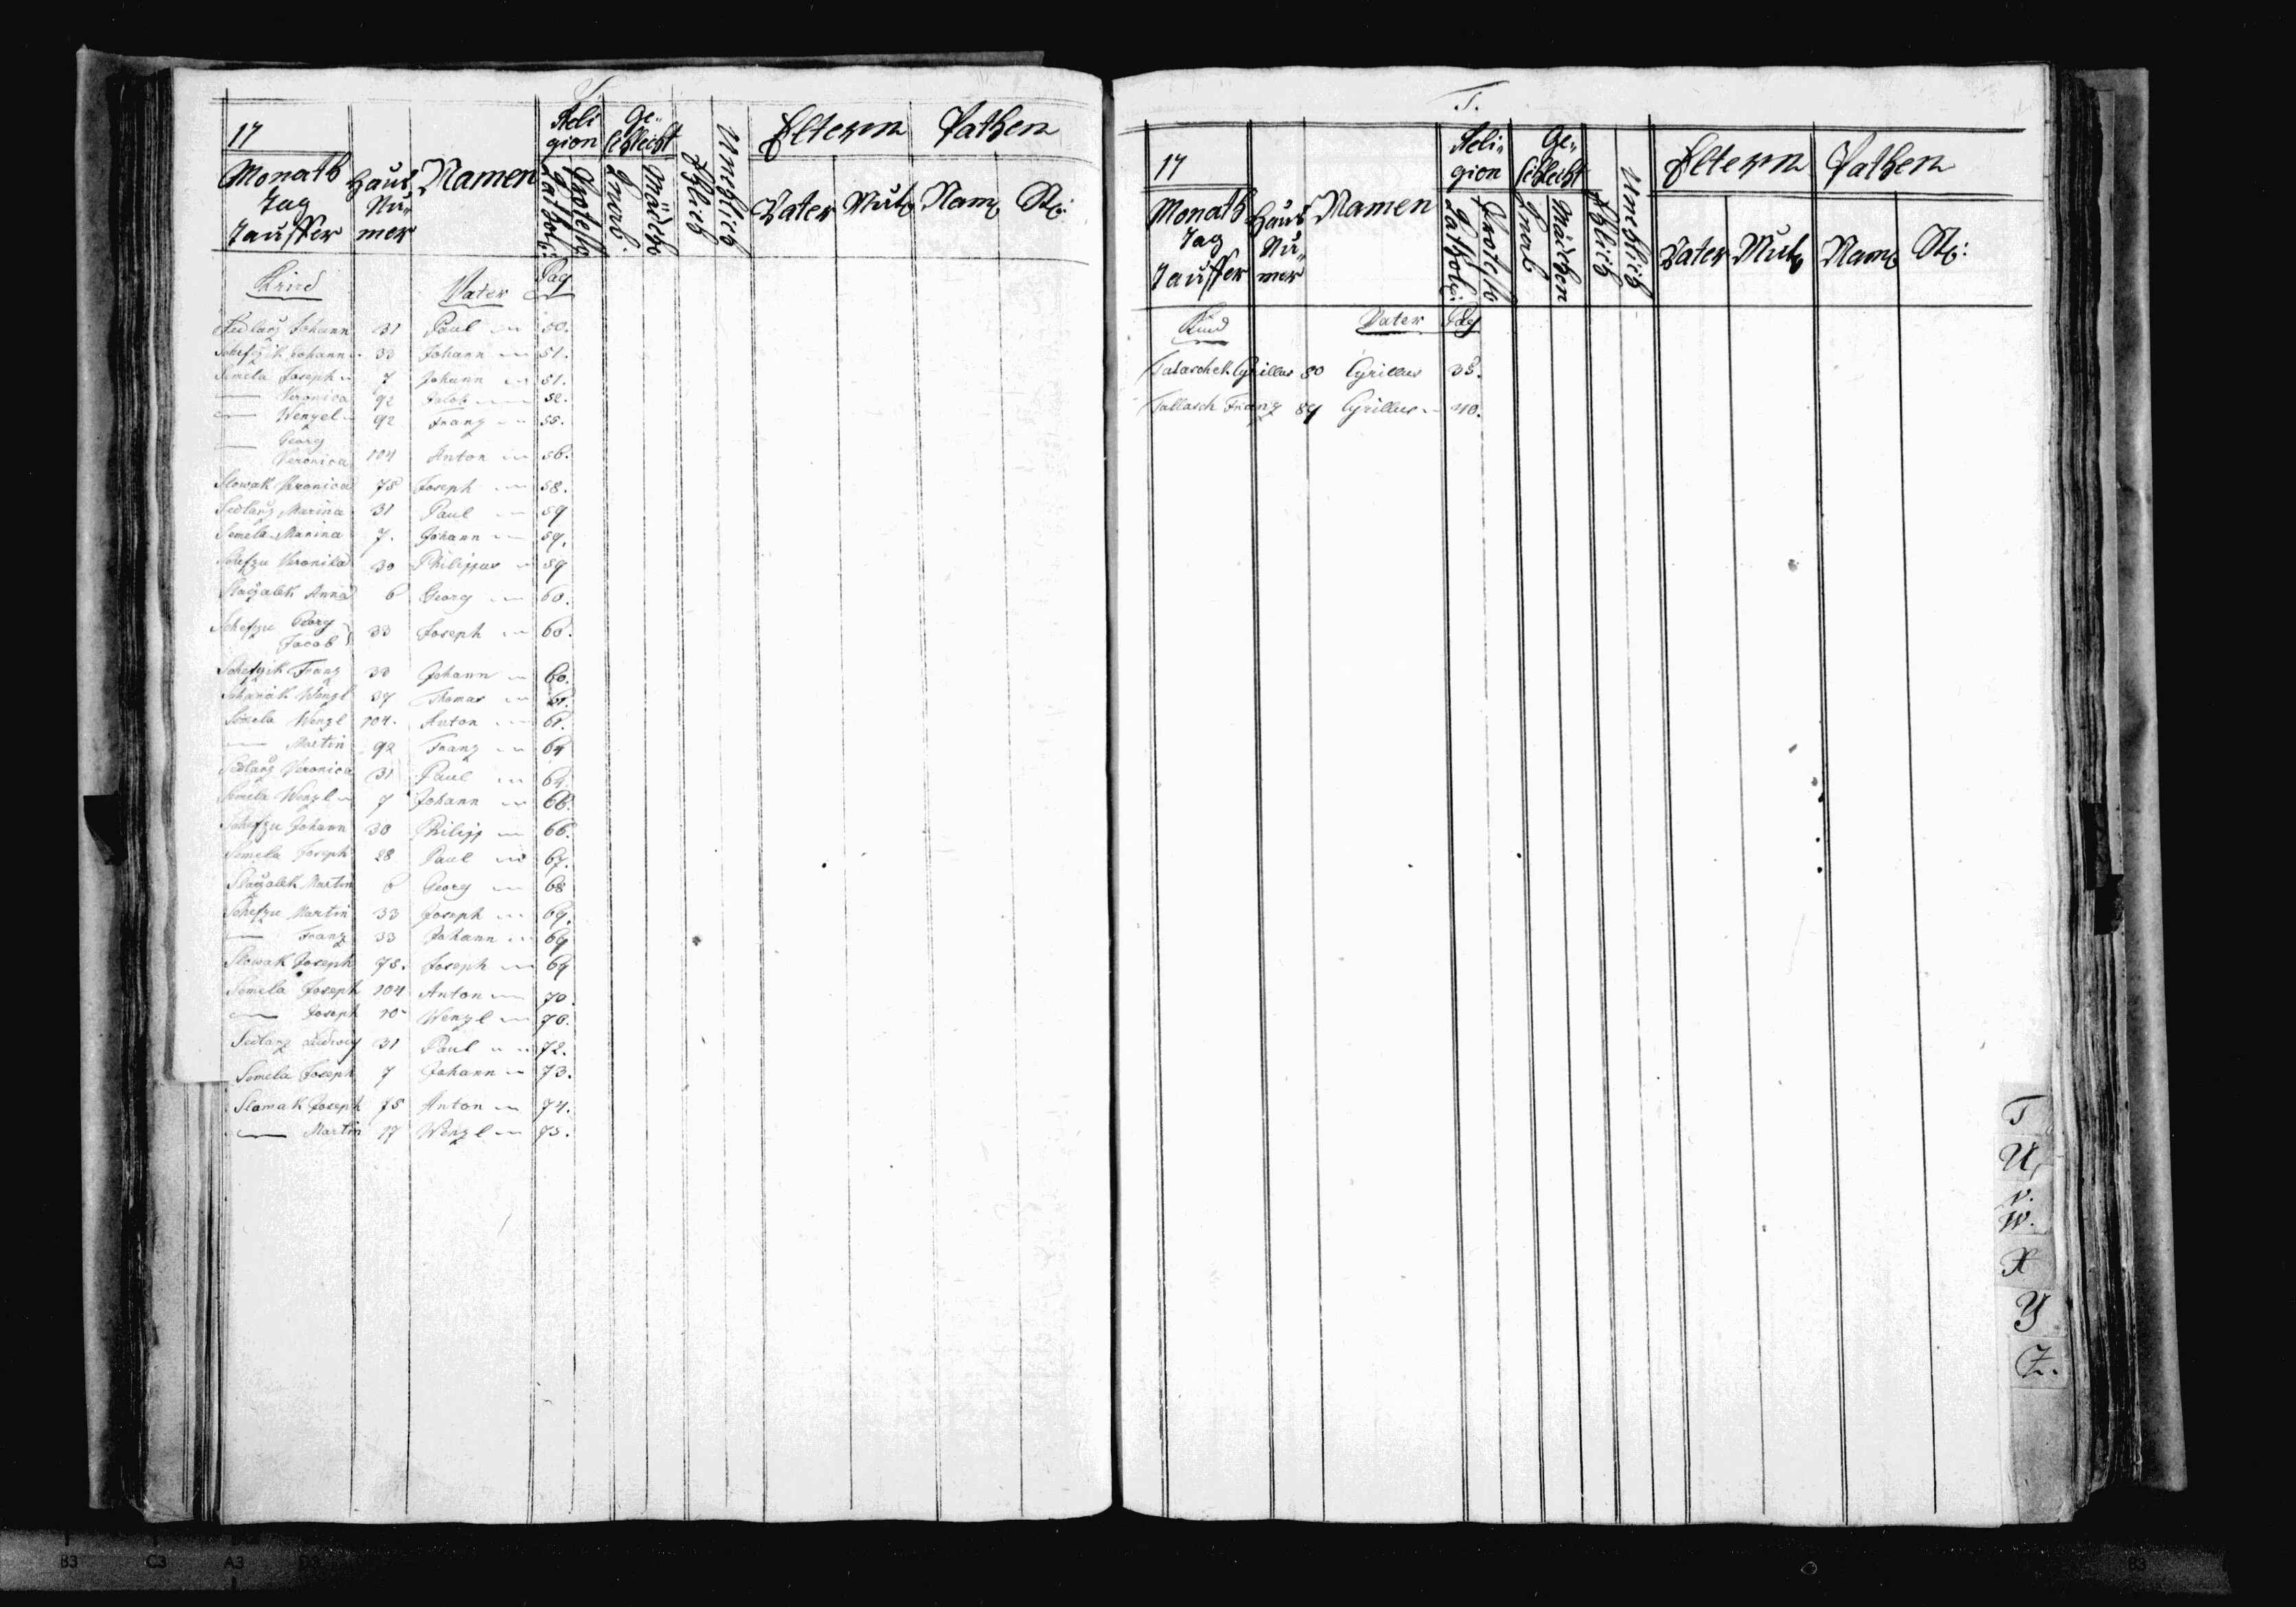 S.
17
Monath Tag Tauffer
Haus Nu- mer
Namen
Reli gion
Kathol:
Protest
Ge- schlecht
Knab:
Mädch
Ehlich
Unehlich
Eltern
Vater
Mutt
Pathen
Nam
St:
Kind Vater Pag
Sedlarz Johann 31 Paul 50.
Schefzik Johann 33 Johann 51.
Semela Joseph 7 Johann 51.
— Veronica 92 Jacob 52.
— Wenzel 92 Franz 55.
— Georg
Veronica 104 Anton 56.
Slowak Veronica 75 Joseph 58.
Sedlarz Marina 31 Paul 59
Semela Marina 7. Johann 59.
Schefzu Veronika 30 Philippus 59
Slazalek Anna 6 Georg 60.
Schefzu Georg
Jacob 33 Joseph 60.
Schefzik Franz 33 Johann 60.
Wenzl 37 Thomas 61.
Semela Wenzl 104. Anton 61.
— Martin 92 Franz 64
Sedlarz Veronica 31 Paul 64
Semela Wenzl 7 Johann 66.
Schefzu Johann 30 Philipp 66.
Semela Joseph 28 Paul 67.
Slazalek Martin 6 Georg 68
Schefzu Martin 33 Joseph 69.
— Franz 33 Johann 69
Slowak Joseph 75. Joseph 69
Semela Joseph 104 Anton 70.
— Joseph 10 Wenzl 70.
Sedlarz Ludwig 31 Paul 72.
Semela Joseph 7 Johann 73.
Slamak Joseph 75 Anton 74.
— Martin 17 Wenzl 75.
T.
17
Monath Tag Tauffer
Haus Nu- mer
Namen
Reli- gion
Kathol:
Protest
Ge- schlecht
Knab
Mädchen
Ehlich
Unehlich
Eltern
Vater
Mutt
Pathen
Nam
St:
Kind Vater Pag
Tataschek Cyrillus 80 Cyrillus 35.
Tallasch Franz 89 Cyrillus 40.
T
U
V.
W.
X
Y
Z.
B3 C3 A3
B3